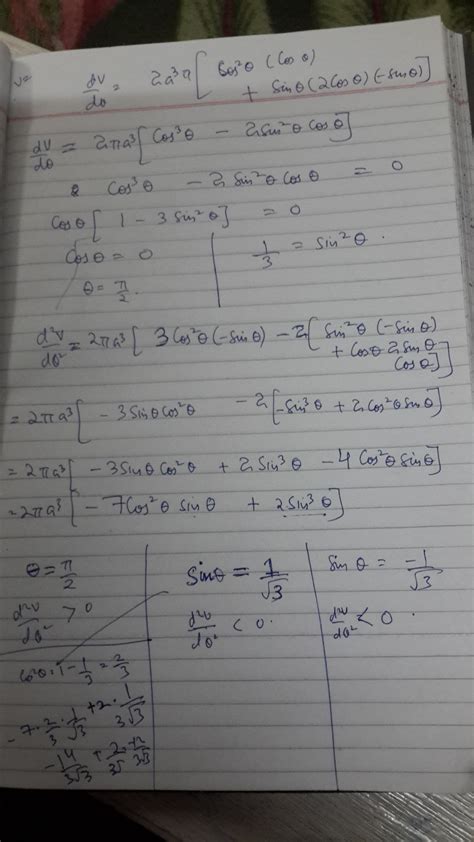 dV/dθ = 2a³π [ Cos²θ (Cos θ)
+ Sinθ (2Cosθ) (-Sinθ) ]
dV/dθ = 2πa³ [ Cos³θ - 2Sin²θ Cosθ ]
Cos³θ - 2Sin²θ Cosθ = 0
Cosθ [ 1 - 3 Sin²θ ] = 0
Cosθ = 0
1/3 = Sin²θ .
θ = π/2 .
d²V/dθ² = 2πa³ [ 3Cos²θ (-Sinθ) - 2 [ Sin²θ (-Sinθ)
+ Cosθ 2Sinθ
Cosθ ] ]
= 2πa³ [ - 3Sinθ Cos²θ - 2 [ -Sin³θ + 2Cos²θ Sinθ ]
= 2πa³ [ - 3Sinθ Cos²θ + 2Sin³θ - 4 Cos²θ Sinθ ]
= 2πa³ [ - 7Cos²θ Sinθ + 2Sin³θ ]
θ = π/2
d²V/dθ² > 0
Cos²θ = 1 - 1/3 = 2/3
-7 · 2/3 · 1/√3 + 2 · 1/3√3
-14/3√3
Sinθ = 1/√3
d²V/dθ² < 0 .
Sinθ = -1/√3
d²V/dθ² < 0 .